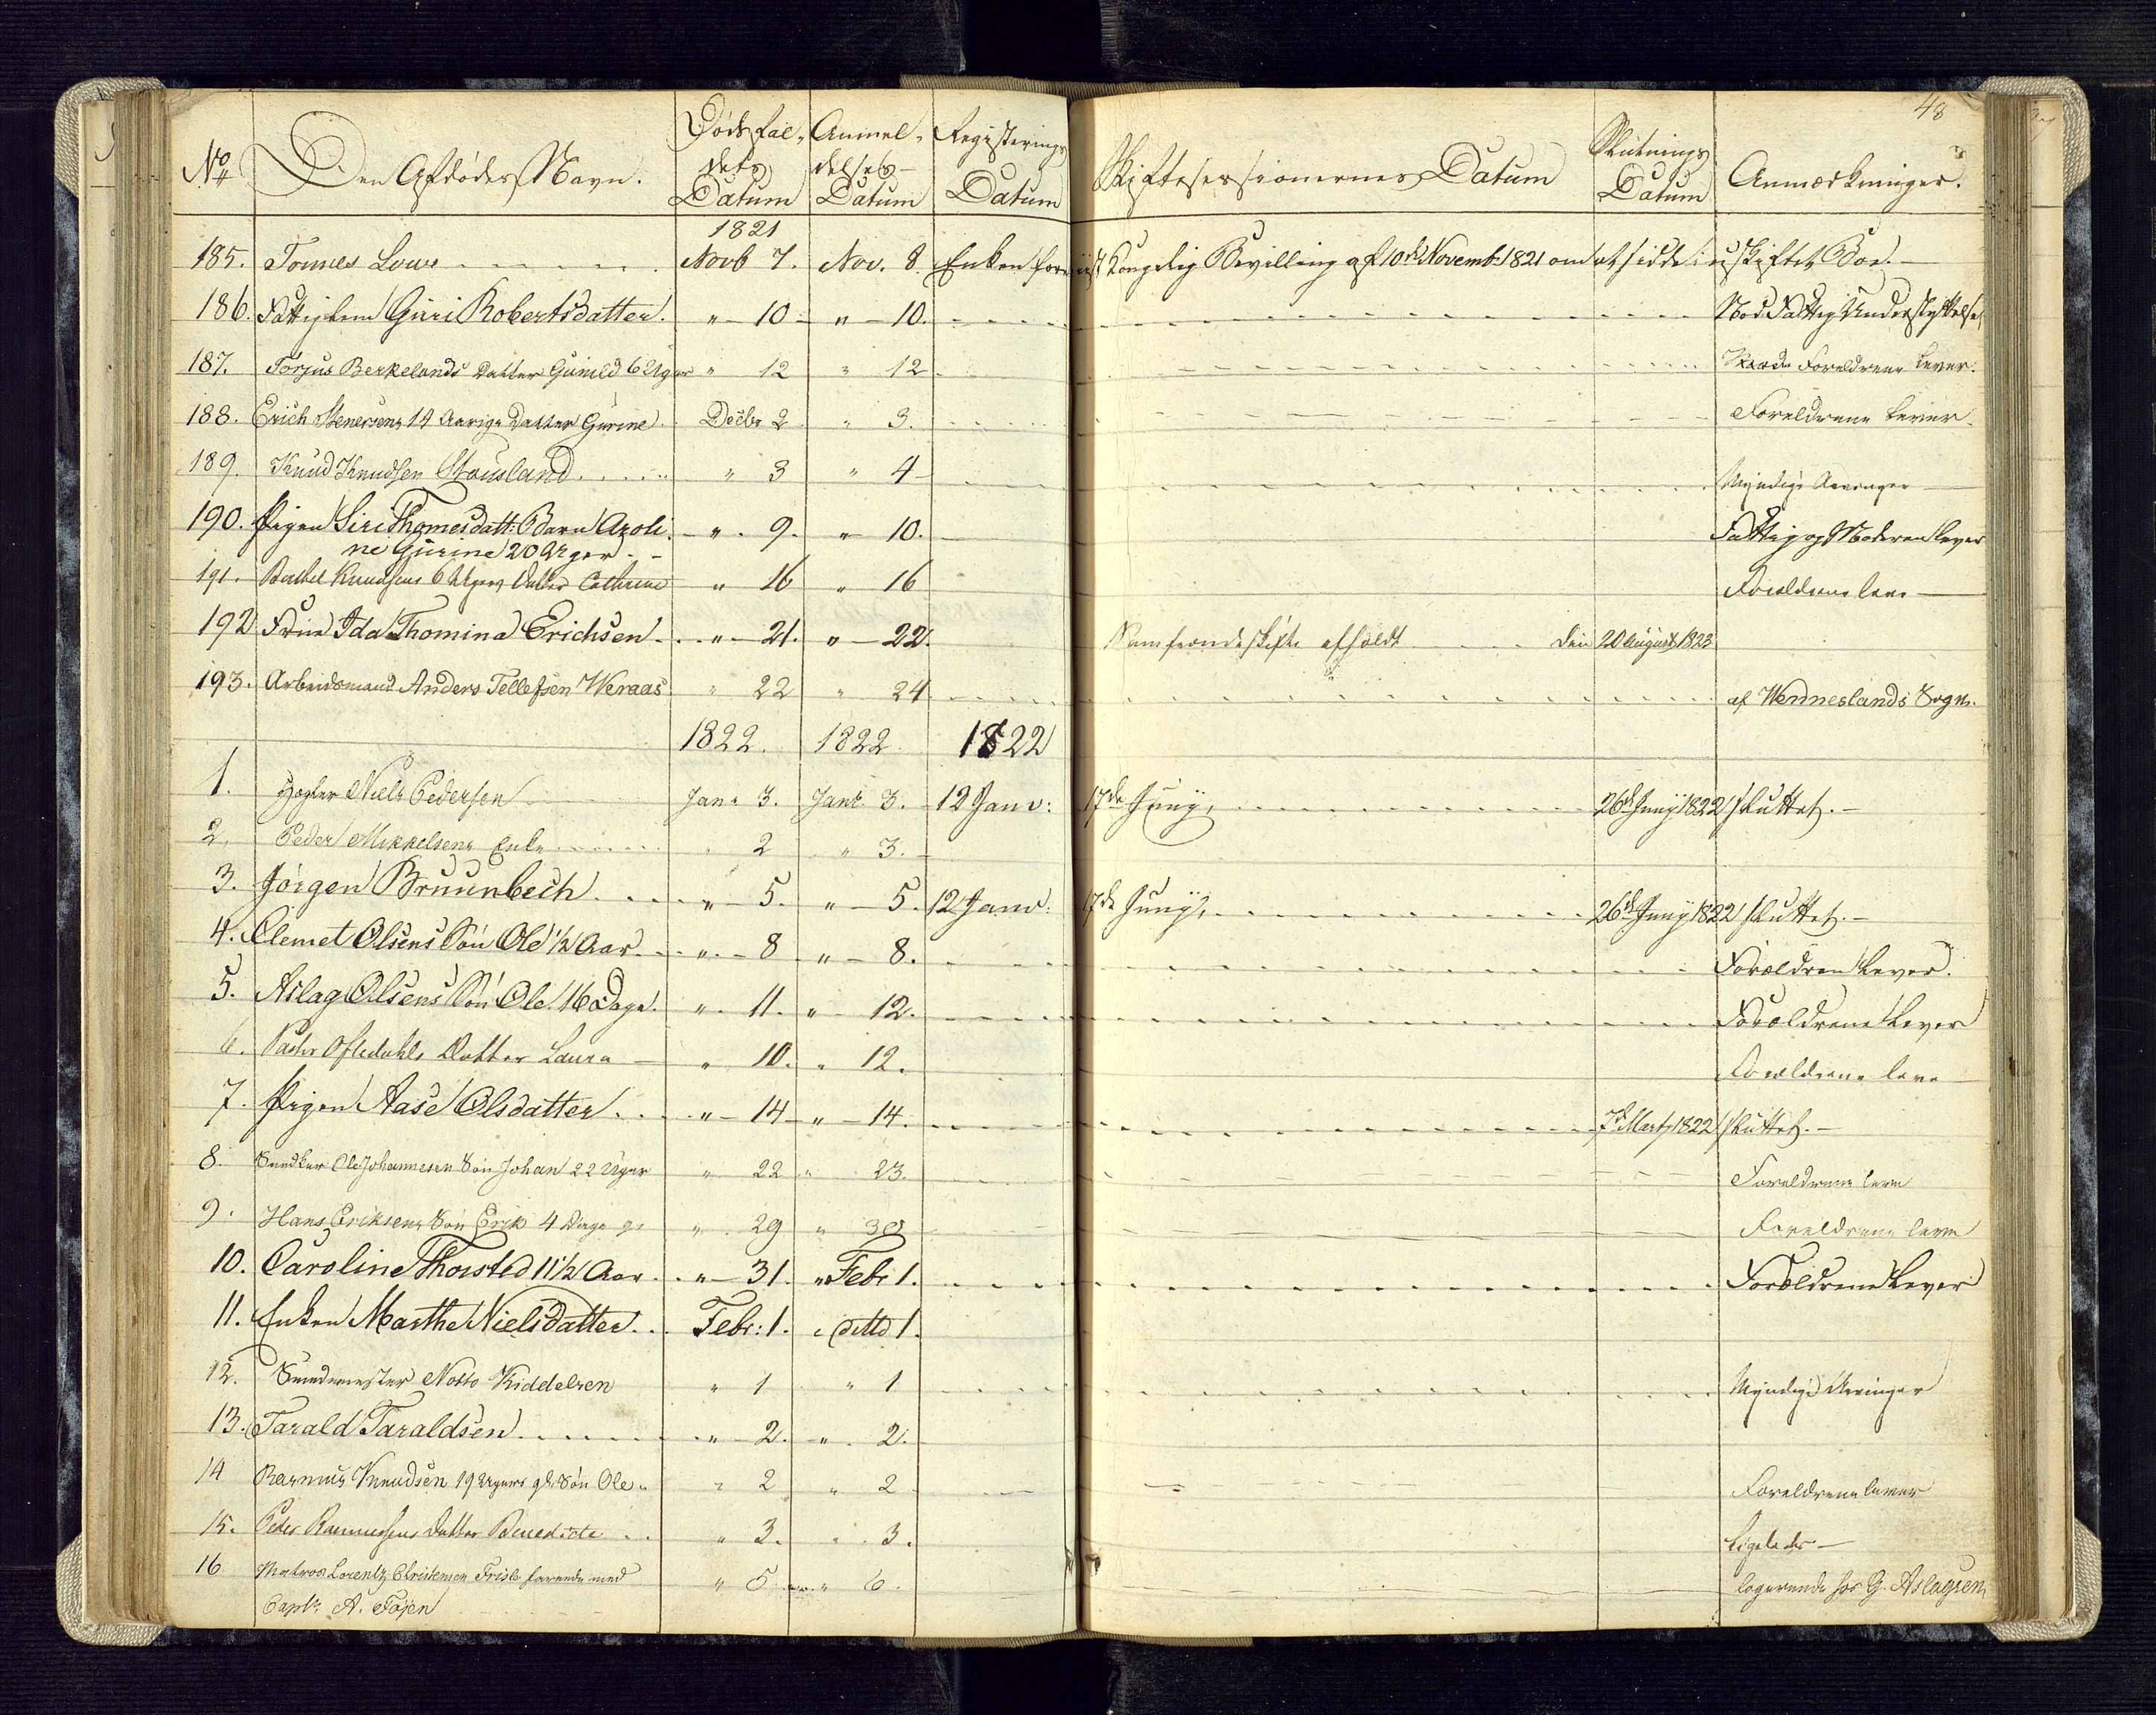 48
No Den Afdødes Navn. Dødsfal- Anmel- Registerings Skiftesessionernes Datum Slutnings Anmærkninger.
dets delses- Datum Datum
Datum Datum
1821
185. Tønnes Loue Novb 7. Nov. 8. Enken foreviist Kongelig Bevilling af 10de Novemb 1821 om at sidde i uskiftet Boe. -
186. Fattiglem Guri Robertsdatter. " - 10 - " - 10. Nød Fattig Understyttelse
187. Torjus Berkelands Datter Gunild 6 Uger " 12 " 12 Foreldrene Lever.
188. Erich Stenersens 14 Aarige Datter Gurine Decbr 2 " 3. Foreldrene Lever.
189. Knud Knudsen Stousland " 3 " 4 - Myndige Arvinger
190. Pigen Siri Thomesdatt: Barn Axoli- " 9. " 10. Fattig og Moderen lever
ne Gurine 20 Uger - -
191. Berthel Knudsens 6 Uger Datter Cathrine " 16 " 16 Forældrene leve -
192 Frue Ida Thomina Erichsen - " - 21. " - 22. Samfrændeskifte afholdt den 20 August 1823
193. Arbeidsmand Anders Tellefsen Weraas " 22 " 24 af Wenneslands Sogn.
1822. 1822 1822
1. Niels Pedersen Jan: 3. Janr 3. 12 Janv: 17de Juny, 26de Juny 1822 sluttet. -
2. Peder Mikkelsens Enke " 2 " 3.
3. Jørgen Bruunbech " - 5. " - 5. 12 Janv: 17de Juny, 26de Juny 1822 sluttet. -
4. Clemet Olsens Søn Ole 1/2 Aar " - 8 " - 8. Forældren Lever.
5. Aslag Olsens Søn Ole 16 Dage. " - 11. " - 12. Forældrene Lever
6. Oftedahls Datter Laura - " 10. " 12. Forældrene leve
7. Pigen Aase Olsdatter " - 14 - " - 14. 7de Marts 1822 sluttet. -
8. Snedker Ole Johannesen Søn Johan 22 Uger " 22 " 23. Foreldrene leve
9. Hans Eriksens Søn Erik 4 Dage gl " 29 " 30 Foreldrene leve
10. Caroline Thorsted 11 1/2 Aar " - 31. " Febr 1. Forældrene Lever
11. Enken Marthe Nielsdatter Febr: 1. ditto 1.
12. Kiddelsen " 1 " 1 Myndige Arvinger
13. Tarald Taraldsen " - 2. " 2.
14 Rasmus Knudsen 19 Ugers gl. Søn Ole " 2 " 2 Foreldrene lever
15. Peder Rasmussens Datter Benedicte " 3. " 3. Ligeledes -
16 Matros Lorentz Christensen Frisle farende med " 5 " 6. logerende hos G. Aslagsen
Captn A. Føjen